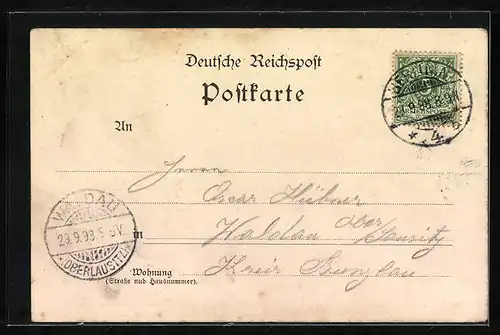 Deutsche Reichspost
Postkarte
An
Herrn
Oscar Hübner
in Waldau Ober Lausitz
Kreis Bunzlau
Wohnung
(Straße und Hausnummer).
WALDAU
29.9.98 5-6V.
* OBERLAUSITZ *